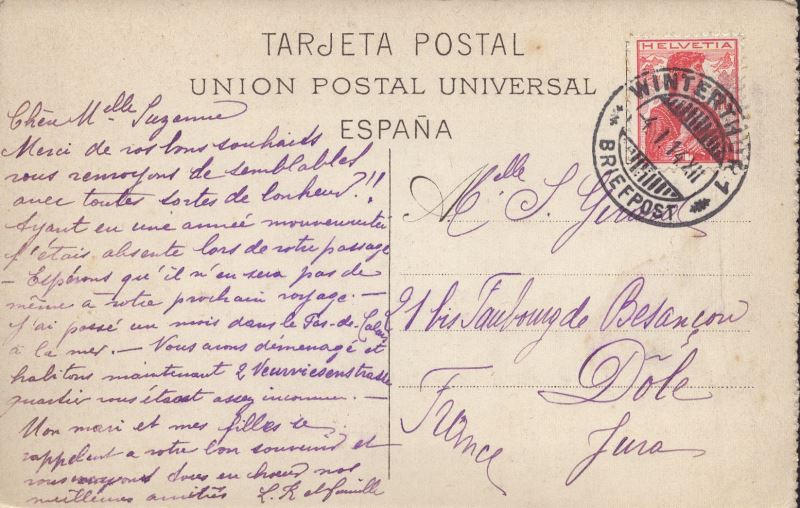 TARJETA POSTAL
UNION POSTAL UNIVERSAL
ESPAÑA
HELVETIA
WINTERTHUR 1
BRIEFPOST
Chère Melle Suzanne
Merci de vos bons souhaits
vous renvoyons de semblables
avec toutes sortes de bonheur?!!
Ayant eu une année mouvementée
j'étais absente lors de votre passage
- Espérons qu'il n'en sera pas de
même a votre prochain voyage. -
J'ai passé un mois dans le Pas-de-Calais
à la mer. - Vous avons déménagé et
habitons maintenant 2
quartier vous étant assez inconnu. -
Mon mari et mes filles se
rappellent a votre bon souvenir et
vous envoyons tous en chœur nos
meilleures amitiés L. R et famille
Melle S.
21 bis Faubourg de Besançon
Dôle
France Jura